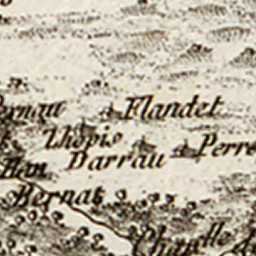 Pernau
Flandet
Lhopis
Darrau
Perre
Han
Bernat
Chapelle de